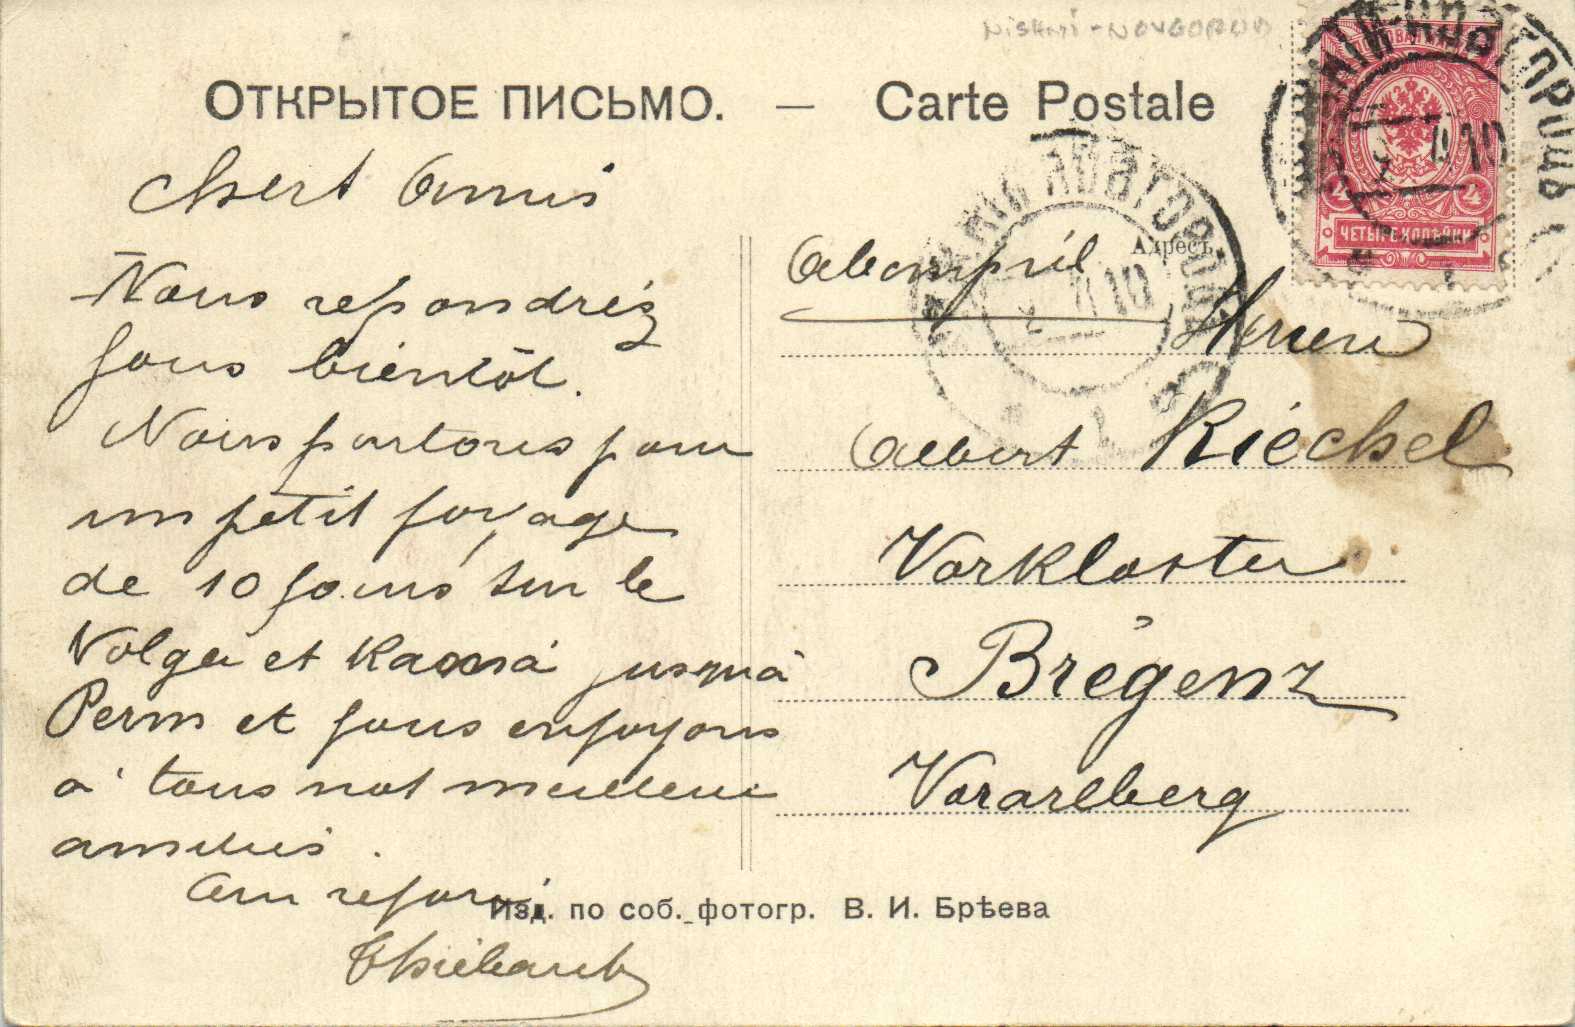 Nishni-Novgorod
ОТКРЫТОЕ ПИСЬМО. — Carte Postale
НИЖНІЙ-НОВГОРОДЪ
10
ЧЕТЫРЕ КОПѢЙКИ
4 4
1 1
НИЖНІЙ НОВГОРОДЪ
2 10
1
Адресъ
Chert Amis
Nous repondrés
fous bientôt.
Nous partons pour
un petit foyage
de 10 jours sur le
Volga et Kama jusqua
Perm et fous enfoyons
à tous not meilleur
amitiés.
Au refoir
Thiébaut
Herren
Albert Riechel
Vorkloster
Bregenz
Vorarlberg
Изд. по соб. фотогр. В. И. Брѣева